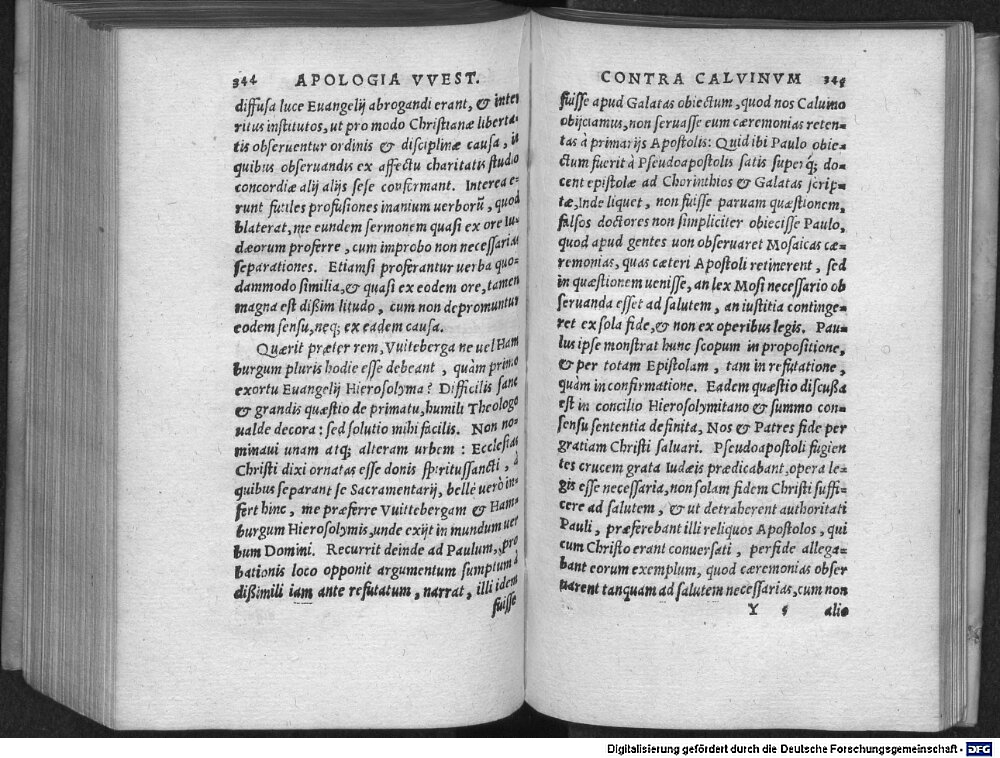 344 APOLOGIA VVEST.
diffusa luce Euangelij abrogandi erant, & inter
ritus institutos, ut pro modo Christianæ liberta-
tis obseruentur ordinis & disciplinæ causa, in
quibus obseruandis ex affectu charitatis studio
concordiæ alij alijs sese conformant. Interea e-
runt futiles profusiones inanium uerborũ, quod
blaterat, me eundem sermonem quasi ex ore Iu-
dæorum proferre, cum improbo non necessarias
separationes. Etiamsi proferantur uerba quo-
dammodo similia, & quasi ex eodem ore, tamen
magna est dißim litudo, cum non depromuntur
eodem sensu, neq; ex eadem causa.
Quærit præter rem, Vuiteberga ne uel Ham
burgum pluris hodie esse debeant, quàm primo
exortu Euangelij Hierosolyma? Difficilis sane
& grandis quæstio de primatu, humili Theologo
ualde decora: sed solutio mihi facilis. Non no-
minaui unam atq; alteram urbem: Ecclesias
Christi dixi ornatas esse donis spiritussancti, à
quibus separant se Sacramentarij, bellè uerò in-
fert hinc, me præferre Vuittebergam & Ham-
burgum Hierosolymis, unde exijt in mundum uer
bum Domini. Recurrit deinde ad Paulum, pro
bationis loco opponit argumentum sumptum à
dißimili iam ante refutatum, narrat, illi idem
fuisse
CONTRA CALVINVM 345
fuisse apud Galatas obiectum, quod nos Caluino
obijciamus, non seruasse eum cæremonias reten-
tas à primarijs Apostolis: Quid ibi Paulo obie-
ctum fuerit à Pseudoapostolis satis superq́; do-
cent epistolæ ad Chorinthios & Galatas scrip-
tæ, Inde liquet, non fuisse paruam quæstionem,
falsos doctores non simpliciter obiecisse Paulo,
quod apud gentes uon obseruaret Mosaicas cæ-
remonias, quas cæteri Apostoli retinerent, sed
in quæstionem uenisse, an lex Mosi necessario ob
seruanda esset ad salutem, an iustitia continge-
ret ex sola fide, & non ex operibus legis. Pau-
lus ipse monstrat hunc scopum in propositione,
& per totam Epistolam, tam in refutatione,
quàm in confirmatione. Eadem quæstio discußa
est in concilio Hierosolymitano & summo con-
sensu sententia definita, Nos & Patres fide per
gratiam Christi saluari. Pseudoapostoli fugien
tes crucem grata Iudæis prædicabant, opera le-
gis esse necessaria, non solam fidem Christi suffi-
cere ad salutem, & ut detraherent authoritati
Pauli, præferebant illi reliquos Apostolos, qui
cum Christo erant conuersati, perfide allega-
bant eorum exemplum, quod cæremonias obser
uarent tanquam ad salutem necessarias, cum non
Y 5 alio
Digitalisierung gefördert durch die Deutsche Forschungsgemeinschaft - DFG